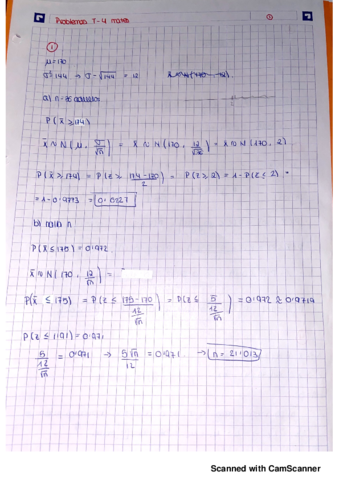 Problemas T-4 mates ①
①
μ=170
σ²=144 → σ=√144 = 12
a) n=36 adultos
P(x̄ ≥174)
x̄ ≈ N(μ, σ/√n) = x̄ ≈ N(170, 12/√36) = x̄ ≈ N(170, 2)
P(x̄ ≥ 174) = P(z ≥ 174-170/2) = P(z ≥ 2) = 1-P(z ≤ 2) =
= 1-0'9773 = 0'0227
b) n
P(x̄ ≤ 175) = 0'972
x̄ ≈ N(170, 12/√n) =
P(x̄ ≤ 175) = P(z ≤ 175-170/12/√n) = P(z ≤ 5/12/√n) = 0'972 ≈ 0'9719
P(z ≤ 1'91) = 0'971
5/12/√n = 0'971 → 5√n/12 = 0'971 → n=21'013
Scanned with CamScanner